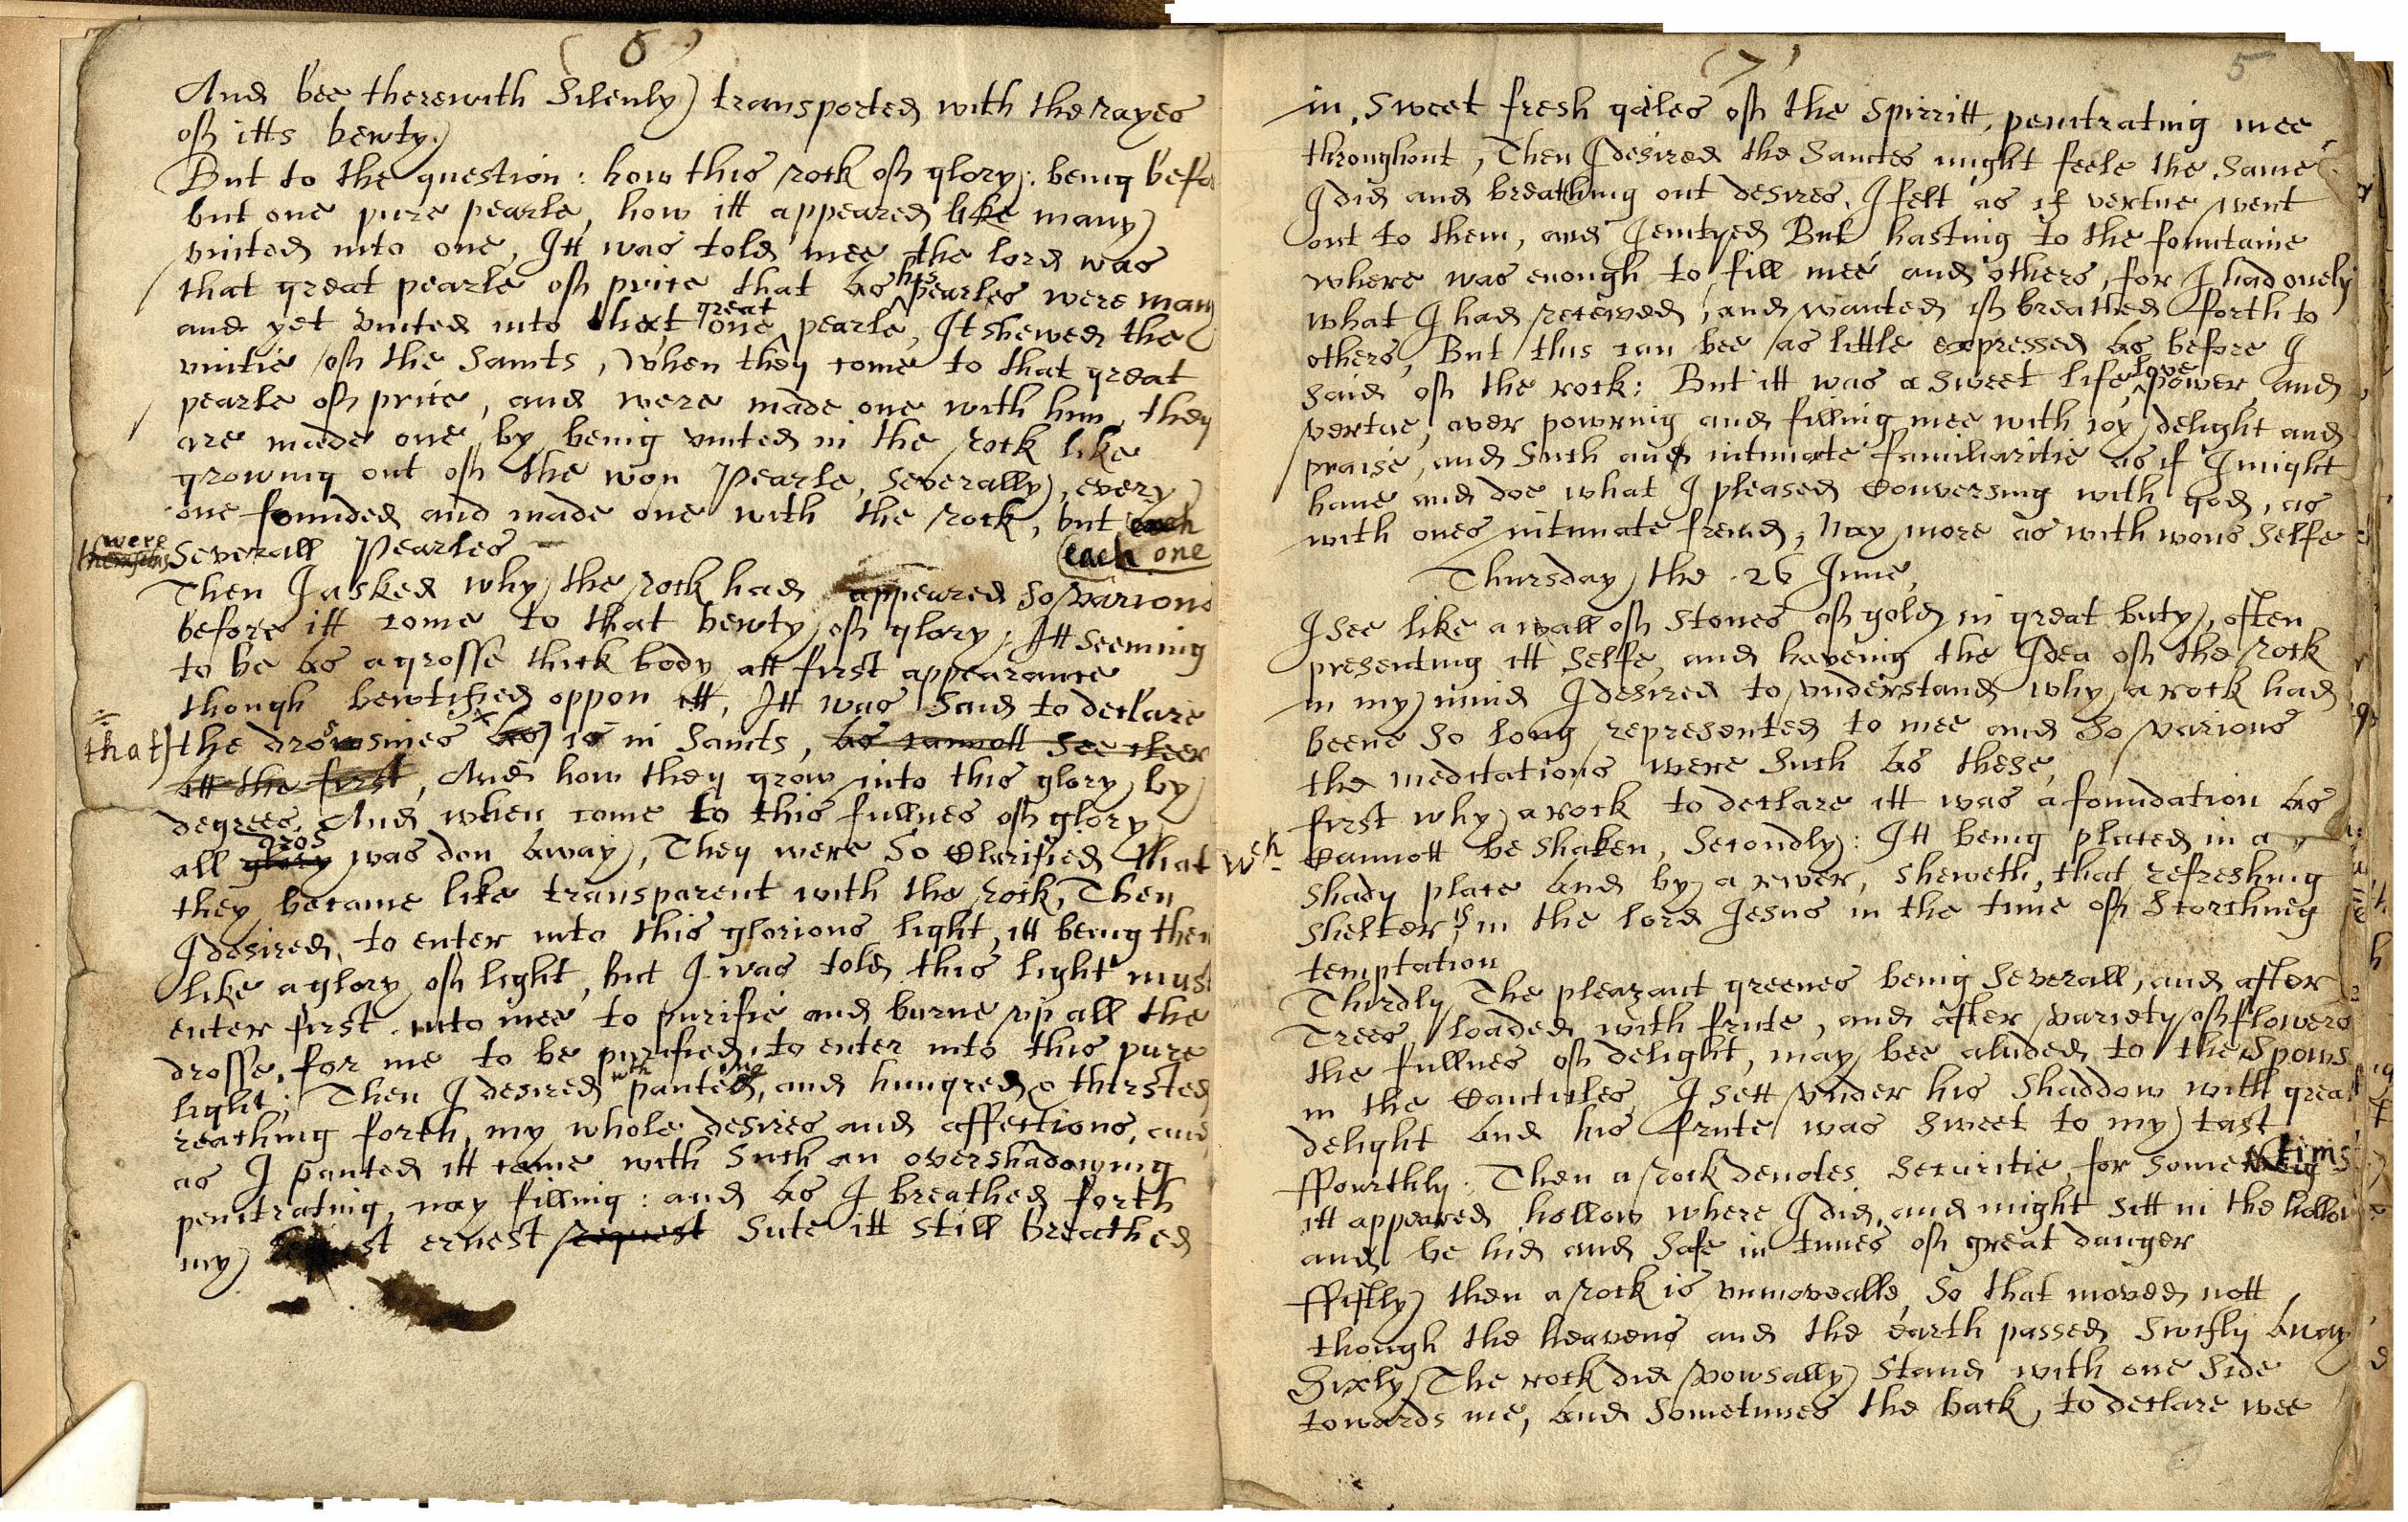 ( 6 )
And bee therewith Silenly transported with the rayes
off itts bewty.
But to the question: how this rock off glory: being befo
but one pure pearle, how itt appeared like many
vnited into one, Itt was told mee the lord was
that great pearle off price that as his pearles were many
and yet vnited into that great one pearle, It shewed the
vnitie off the Saints, when they come to that great
pearle off price, and were made one with him, they
are made one by being vnited in the rock like
growing out off the won Pearle, Severally, every
one founded and made one with the rock, but each
each one
were themselves Severall Pearles
Then I asked why the rock had appeared so various
before itt come to that bewty off glory, Itt seeming
to be as a grosse thick body att first appearance
though bewtified oppon itt, Itt was said to declare
that the drossines as is in Sancts, as cannott see cleer
att the first, And how they grow into this glory by
degrees, And when come to this fullnes off glory
all glory gros was don away, They were so Clarified that
they became like transparent with the rock, Then
I desired to enter into this glorious light, itt being then
like a glory off light, but I was told this light must
enter first into mee to purifie and burne vp all the
drosse, for me to be purified, to enter into this pure
light; Then I desired with panteing, and hungred & thirsted
reaching forth my whole desires and affections, and
as I panted itt came with such an overshadowing
penitrating, nay filling: and as I breathed forth
my ernest request Sute itt still breathed
( 7 )
5
in, Sweet fresh gailes off the Spirritt, penitrating mee
throughout, Then I desired the Sanctes might feele the same
I did and breathing out desires, I felt as if vertue went
out to them, and I emtyed But hasting to the fountaine
where was enough to fill mee and others, for I had onely
what I had receivedd, and wanted iff breathed forth to
others, But this can bee as little expressed as before I
said off the rock: But itt was a sweet life, love power, and
vertue, over powring and filling mee with ioy delight and
praise, and Such and intimate familiaritie as if I might
haue and doe what I pleased Conversing with god, as
with ones intimate freind, Nay more as with wons selfe
Thursday the 26 June,
I see like a wall off Stones off gold in great buty, often
presenting itt Selfe, and haveing the Idea off the rock
in my mind I desired to vnderstand why a rock had
beene so long represented to mee and so various
the meditations were such as these,
first why a rock to declare itt was a foundation as
wch Cannott be Shaken, Secondly: Itt being placed in a
Shady place and by a river, sheweth, that refreshing
Shelter is in the lord Jesus in the time off Scorching
temptation
Thirdly The pleazant greenes being Severall, and after
Trees, loaded with frute, and after variety off flowers
the fullnes off delight, may bee aluded to the Spous
in the Canticles I sett vnder his Shaddow with great
delight and his frute was sweet to my tast
ffourthly. Then a rock denotes Securitie, for some tims
itt appeared hollow where I did, and might sitt in the hollow
and be hid and safe in times off great danger
ffiftly then a rock is vnmoveable, So that moved nott
though the heavens and the earth passed Swifly away
Sixly The rock did vowsally stand with one side
towards me, and sometimes the back, to declare wee